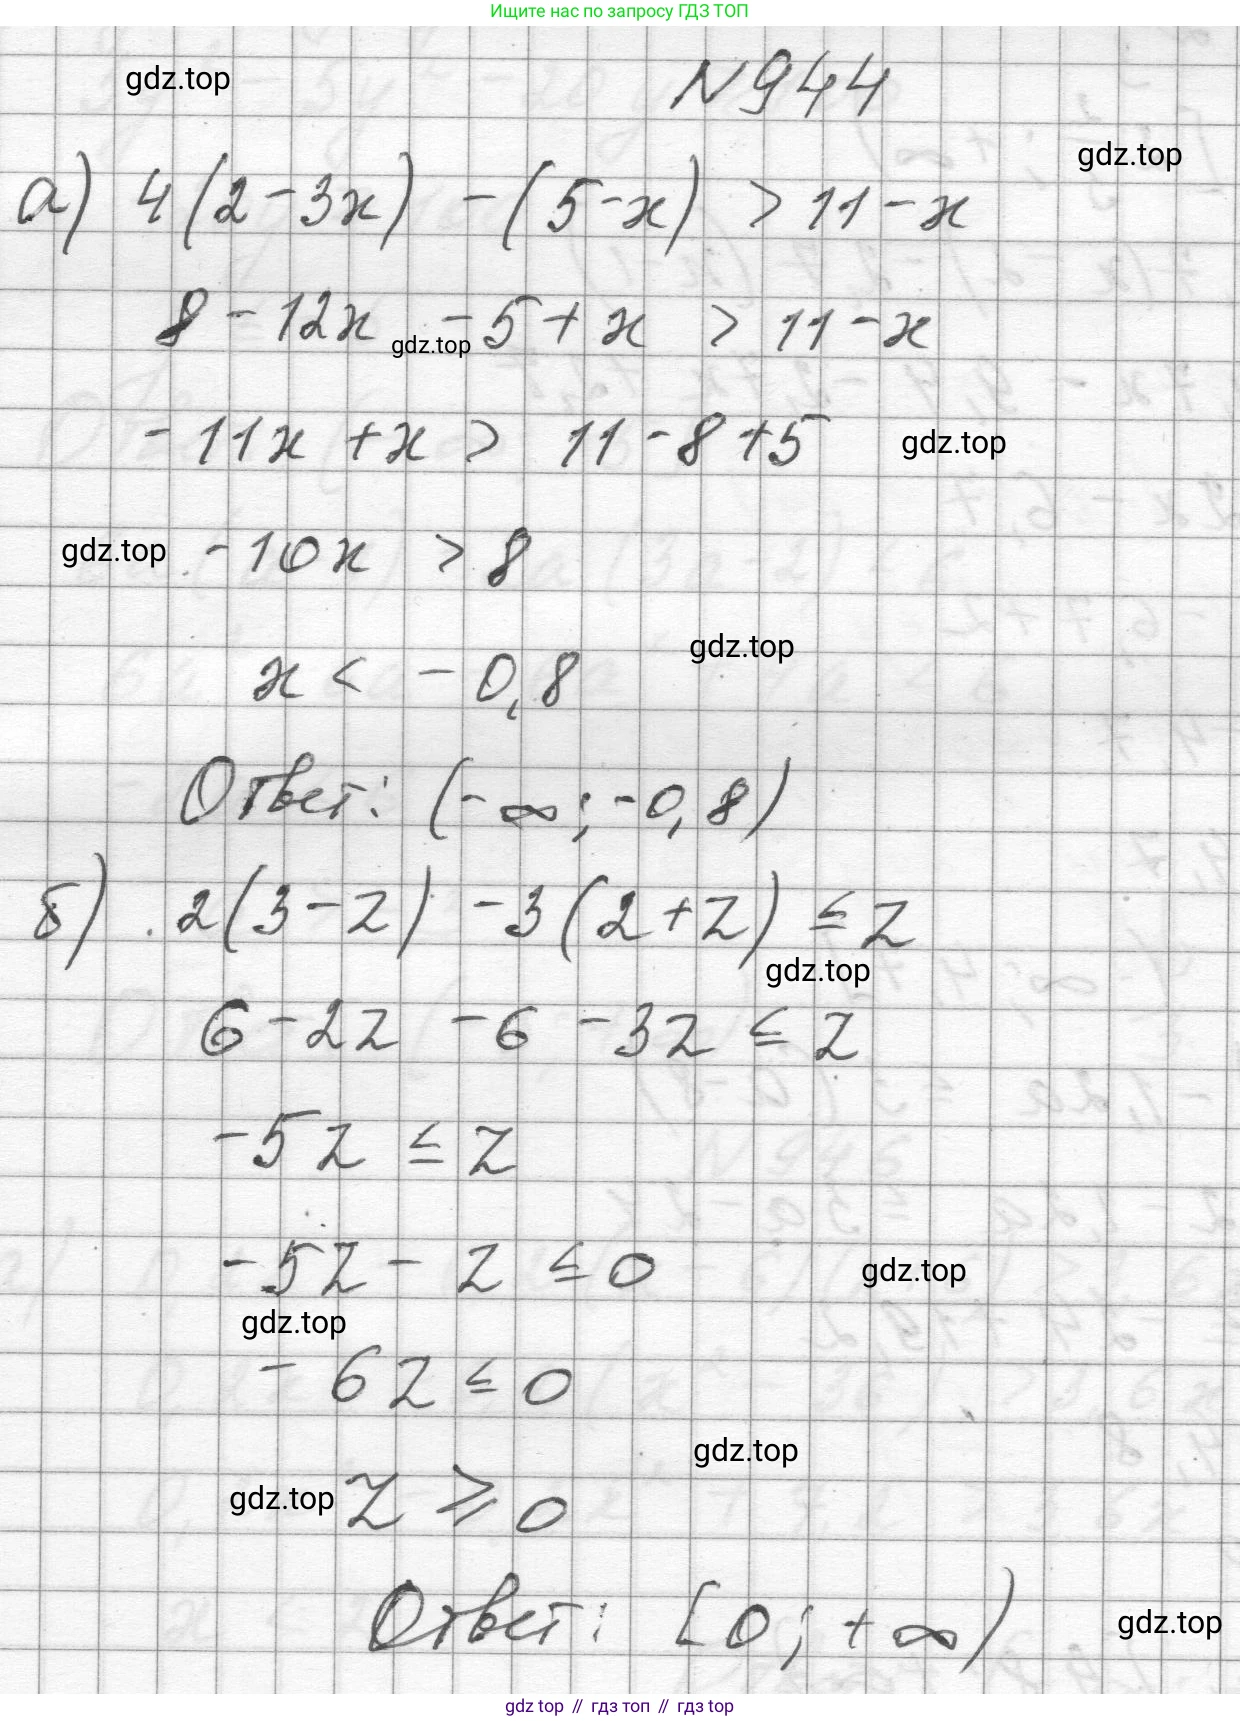 Ищите нас по запросу ГДЗ ТОП
gdz.top
N 944
gdz.top
а) 4(2-3x) -(5-x) > 11-x
8-12x -5+x > 11-x
gdz.top
-11x +x > 11-8+5
gdz.top
gdz.top
-10x > 8
gdz.top
x < -0,8
Ответ: (-∞; -0,8)
б) 2(3-z) -3(2+z) ≤ z
gdz.top
6-2z -6 -3z ≤ z
-5z ≤ z
-5z - z ≤ 0
gdz.top
gdz.top
-6z ≤ 0
gdz.top
gdz.top
z ⩾ 0
Ответ: [0; +∞)
gdz.top
gdz top // гдз топ // гдз top